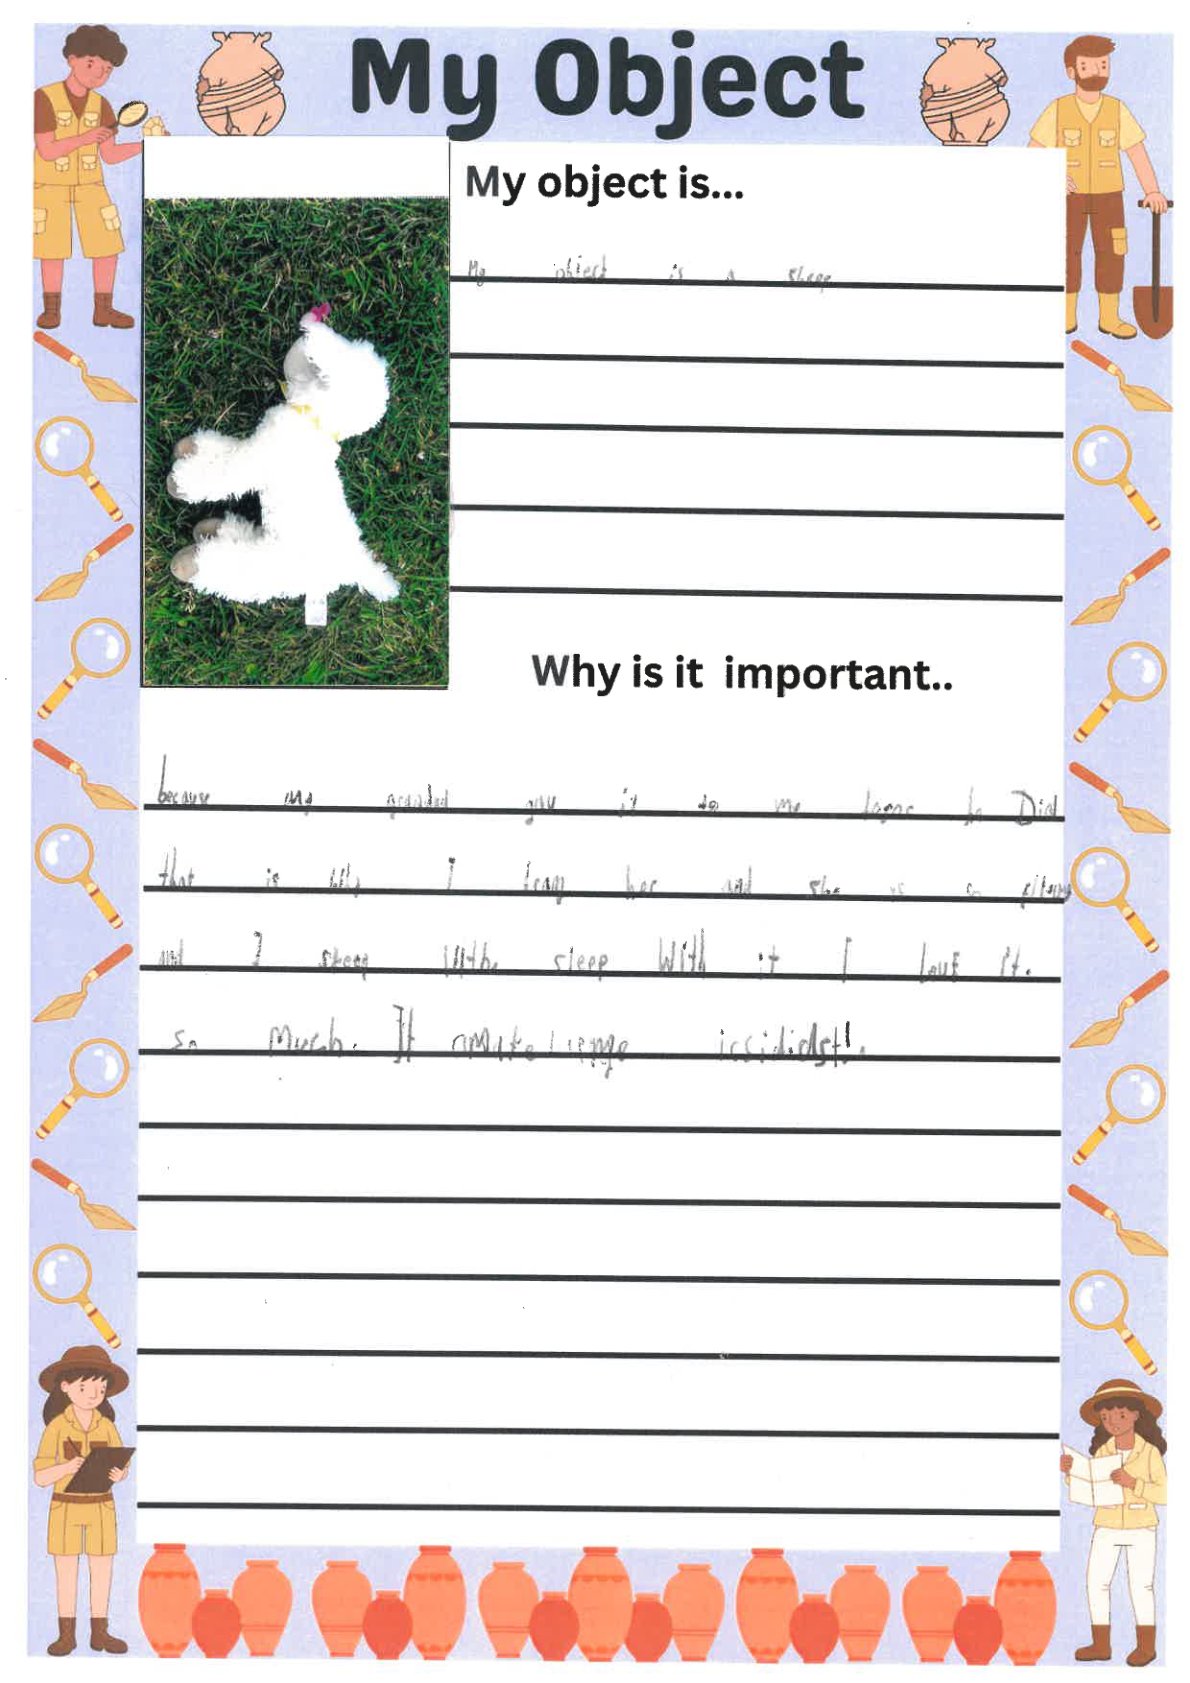 My Object
My object is...
My object is a sheep
Why is it important..
because my grandad gave it to me before he Died
that is Why I keep her and she is so
and I sleep With sleep With it I love it.
so Much. It